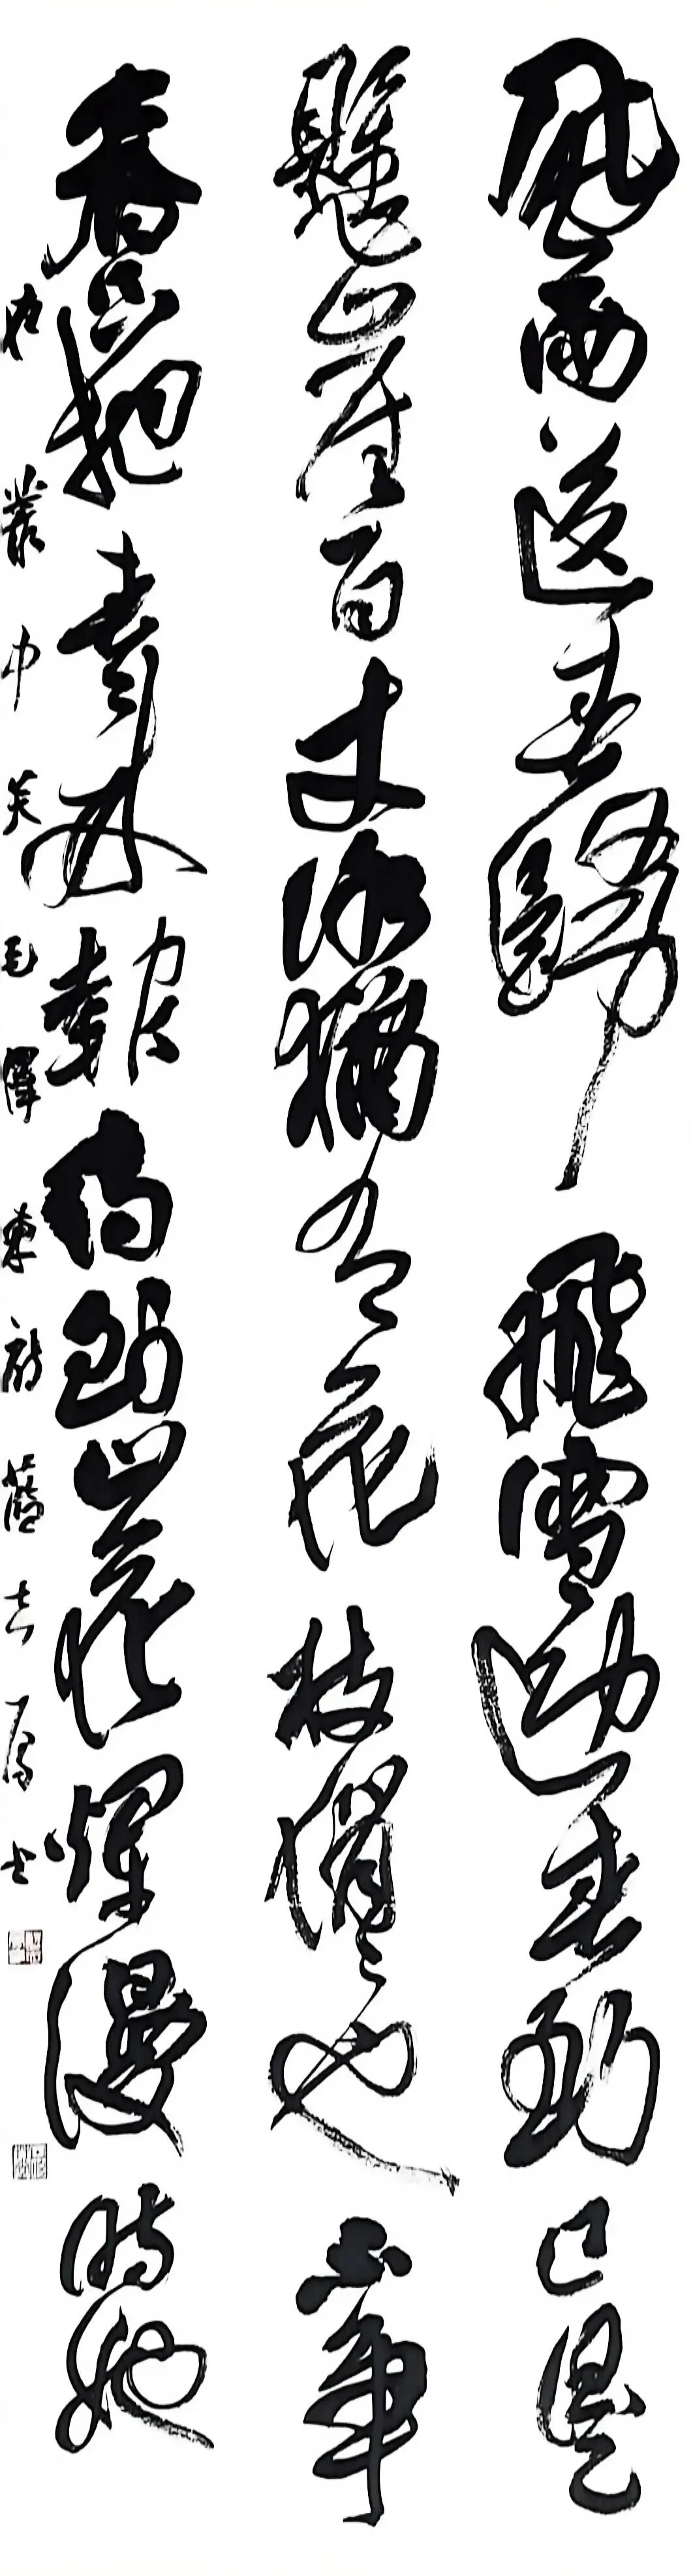 風雨送春歸飛雪迎春到已是
懸崖百丈冰猶有花枝俏々也不爭
春只把春來報待到山花爛漫時她
在叢中笑毛澤東詞藍書